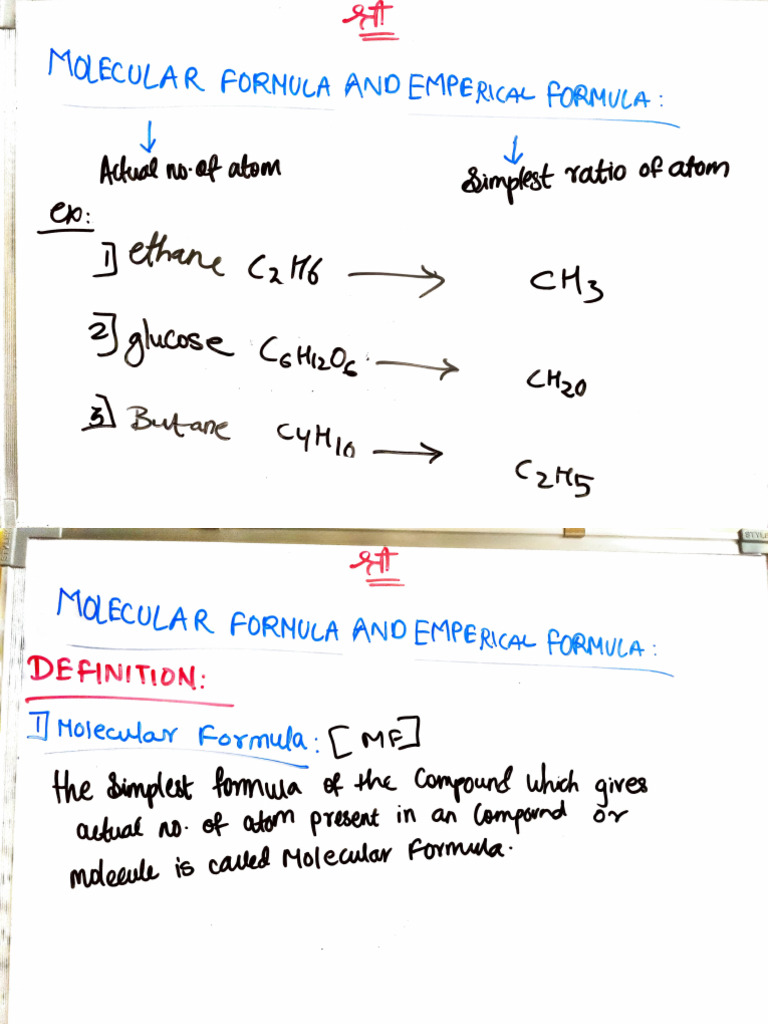 श्री
MOLECULAR FORMULA AND EMPERICAL FORMULA:
↓ ↓
Actual no. of atom Simplest ratio of atom
ex:
1] ethane C2H6 → CH3
2] glucose C6H12O6 → CH2O
3] Butane C4H10 → C2H5
श्री
MOLECULAR FORMULA AND EMPERICAL FORMULA:
DEFINITION:
1] Molecular Formula: [MF]
the simplest formula of the compound which gives
actual no. of atom present in an compound or
molecule is called Molecular Formula.